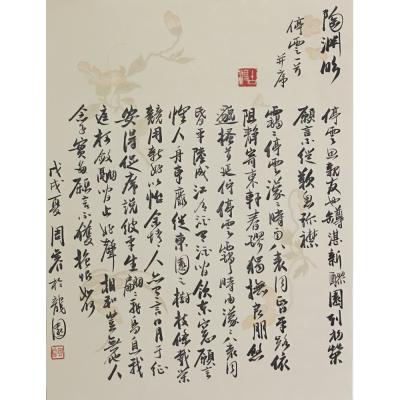 陶渊明
停雲一首
并序
停雲思親友也罇湛新醪園列初榮
願言不從歎息弥襟
靄〻停雲濛〻時雨八表同昏平路依
阻静寄東軒春醪獨撫良朋悠
邈搔首延佇停雲靄〻時雨濛〻八表同
昏平陸成江有酒有酒闲饮東窓願言
懷人舟車靡從東園之樹枝條載榮
競用新好以怡余情人亦有言日月于征
安得促席说彼平生翩〻飛鳥息我
庭柯斂翮闲止好聲相和豈無他人
念子實多願言不獲抱恨如何
戊戌夏周於龍園